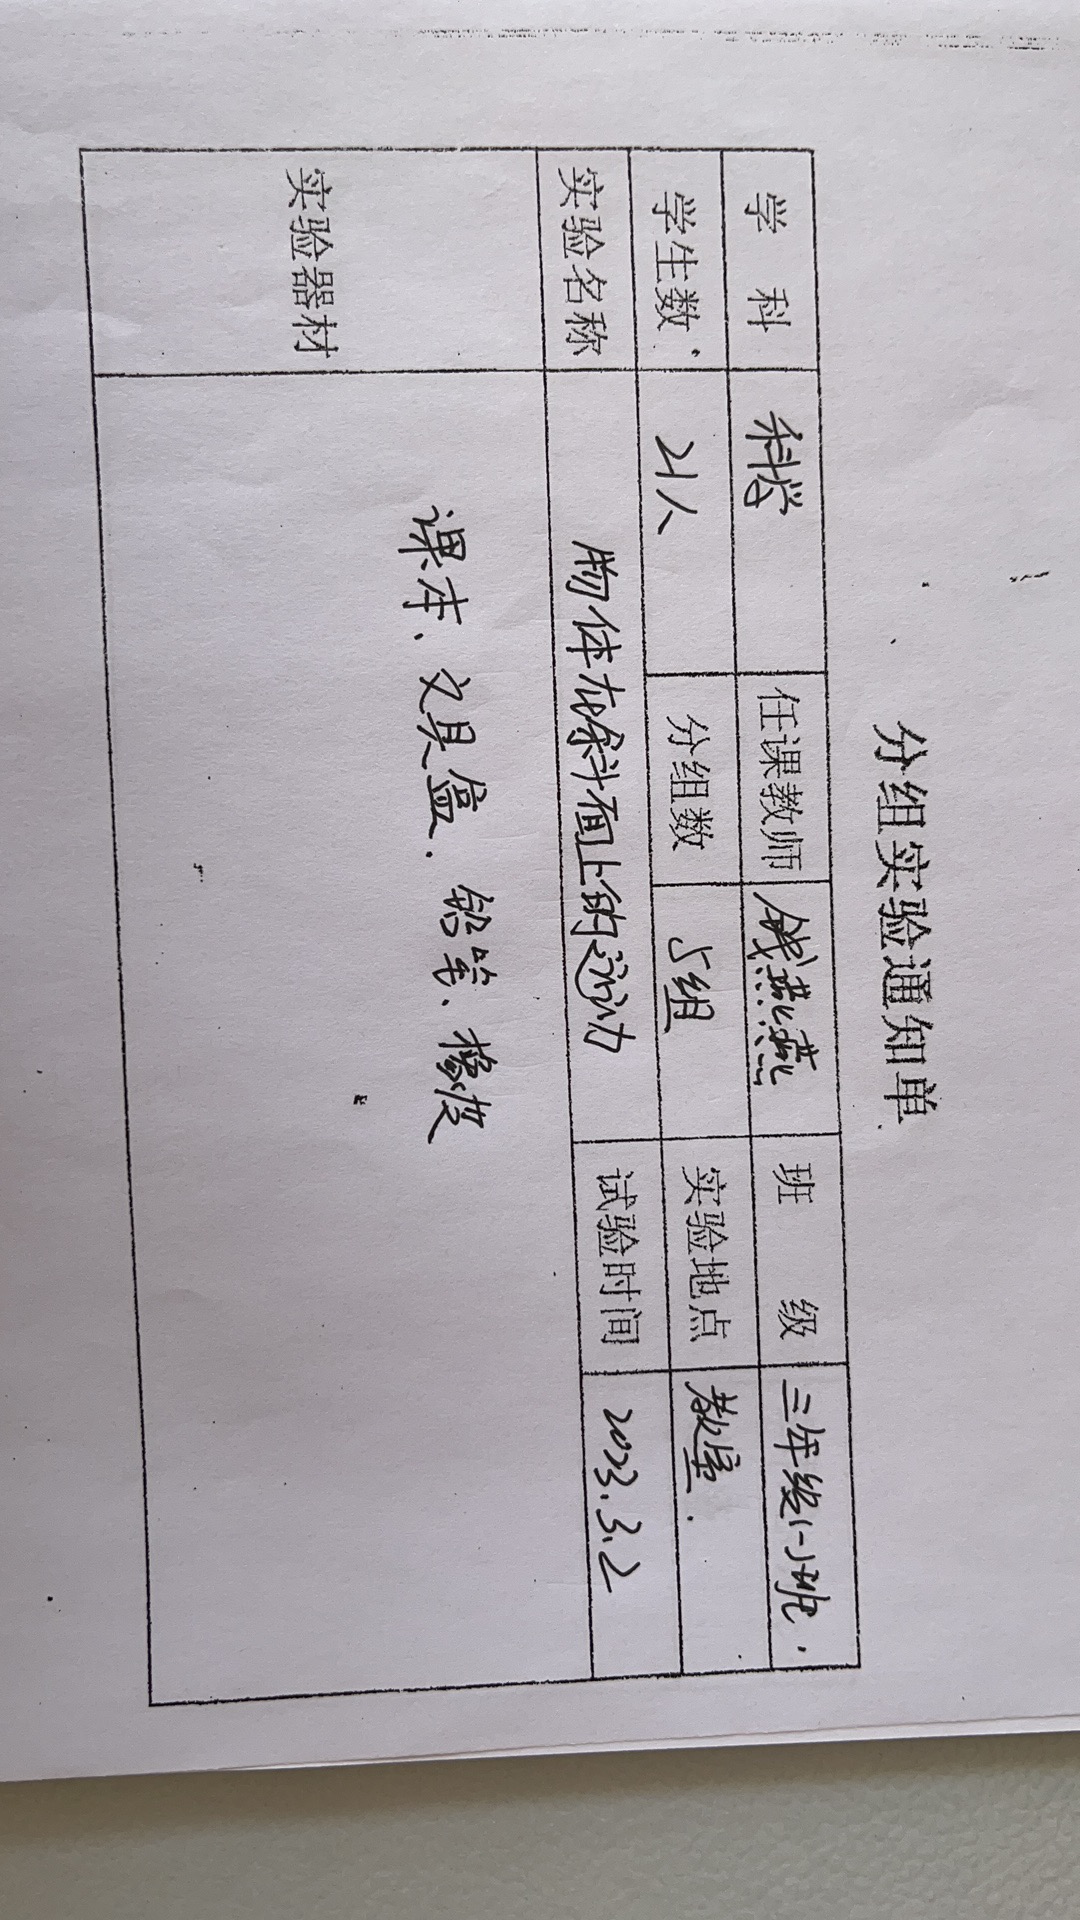 分组实验通知单
学 科 科学 任课教师 钱燕燕 班 级 三年级(一)班.
学生数 21人 分组数 5组 实验地点 教室.
实验名称 物体在斜面上的运动 试验时间 2023.3.2
实验器材 课本、文具盒、铅笔、橡皮